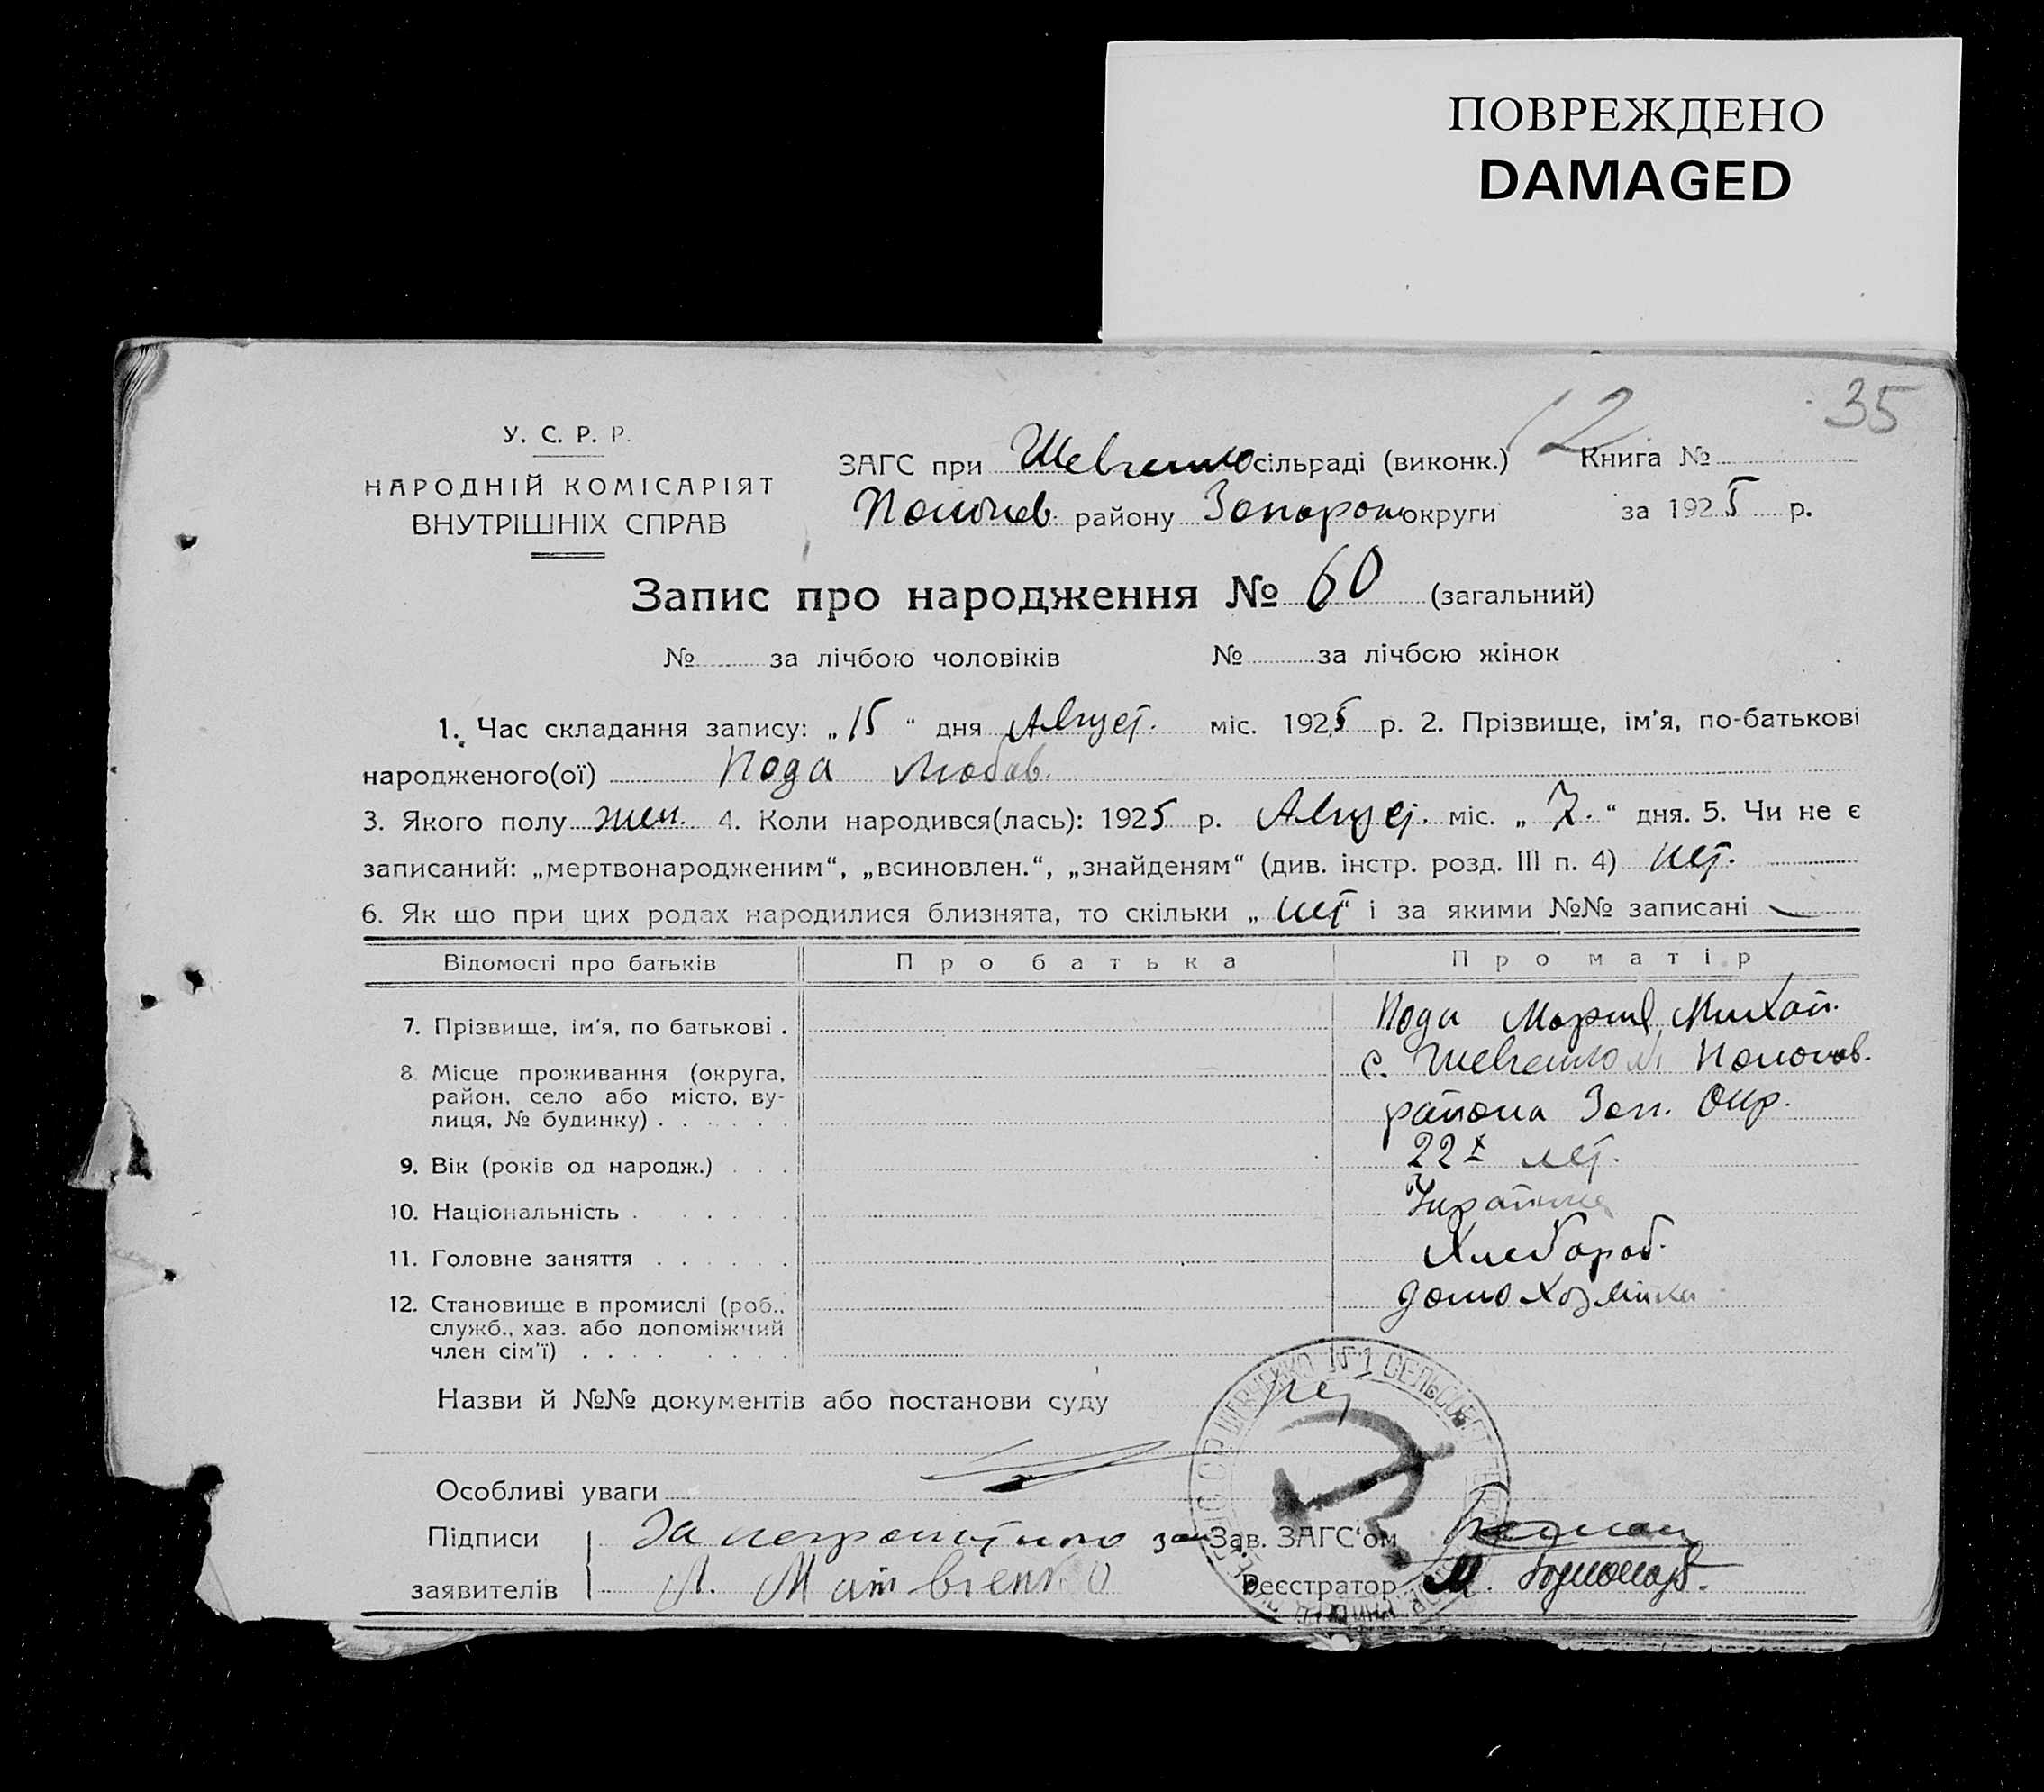 ПОВРЕЖДЕНО
DAMAGED
12
35
У. С. Р. Р.
НАРОДНІЙ КОМІСАРІЯТ
ВНУТРІШНІХ СПРАВ
ЗАГС при Шевченко сільраді (виконк.) Книга №
району Запорож округи за 1925 р.
Запис про народження № 60 (загальний)
№ за лічбою чоловіків № за лічбою жінок
1. Час складання запису: „15“ дня Август. міс. 1925 р. 2. Прізвище, ім'я, по-батькові
народженого(ої) Пода Любов.
3. Якого полу жен. 4. Коли народився(лась): 1925 р. Август. міс. „7.“ дня. 5. Чи не є
записаний: „мертвонародженим“, „всиновлен.“, „знайденям“ (див. інстр. розд. III п. 4) нет.
6. Як що при цих родах народилися близнята, то скільки „нет“ і за якими №№ записані —
Відомості про батьків Про батька Про матір
7. Прізвище, ім'я, по батькові . Пода Мария Михай.
8. Місце проживання (округа, с. Шевченко
район, село або місто, ву-
лиця, № будинку) . . . . . . района Зап. Окр.
9. Вік (років од народж.) . . . 22 лет.
10. Національність . . . . . Украинка
11. Головне заняття . . . . . . Хлебороб.
12. Становище в промислі (роб., домохозяйка
служб., хаз. або допоміжний
член сім'ї) . . . . . . . .
Назви й №№ документів або постанови суду нет
Особливі уваги
Підписи За неграмотного Зав. ЗАГС'ом
заявителів Реєстратор